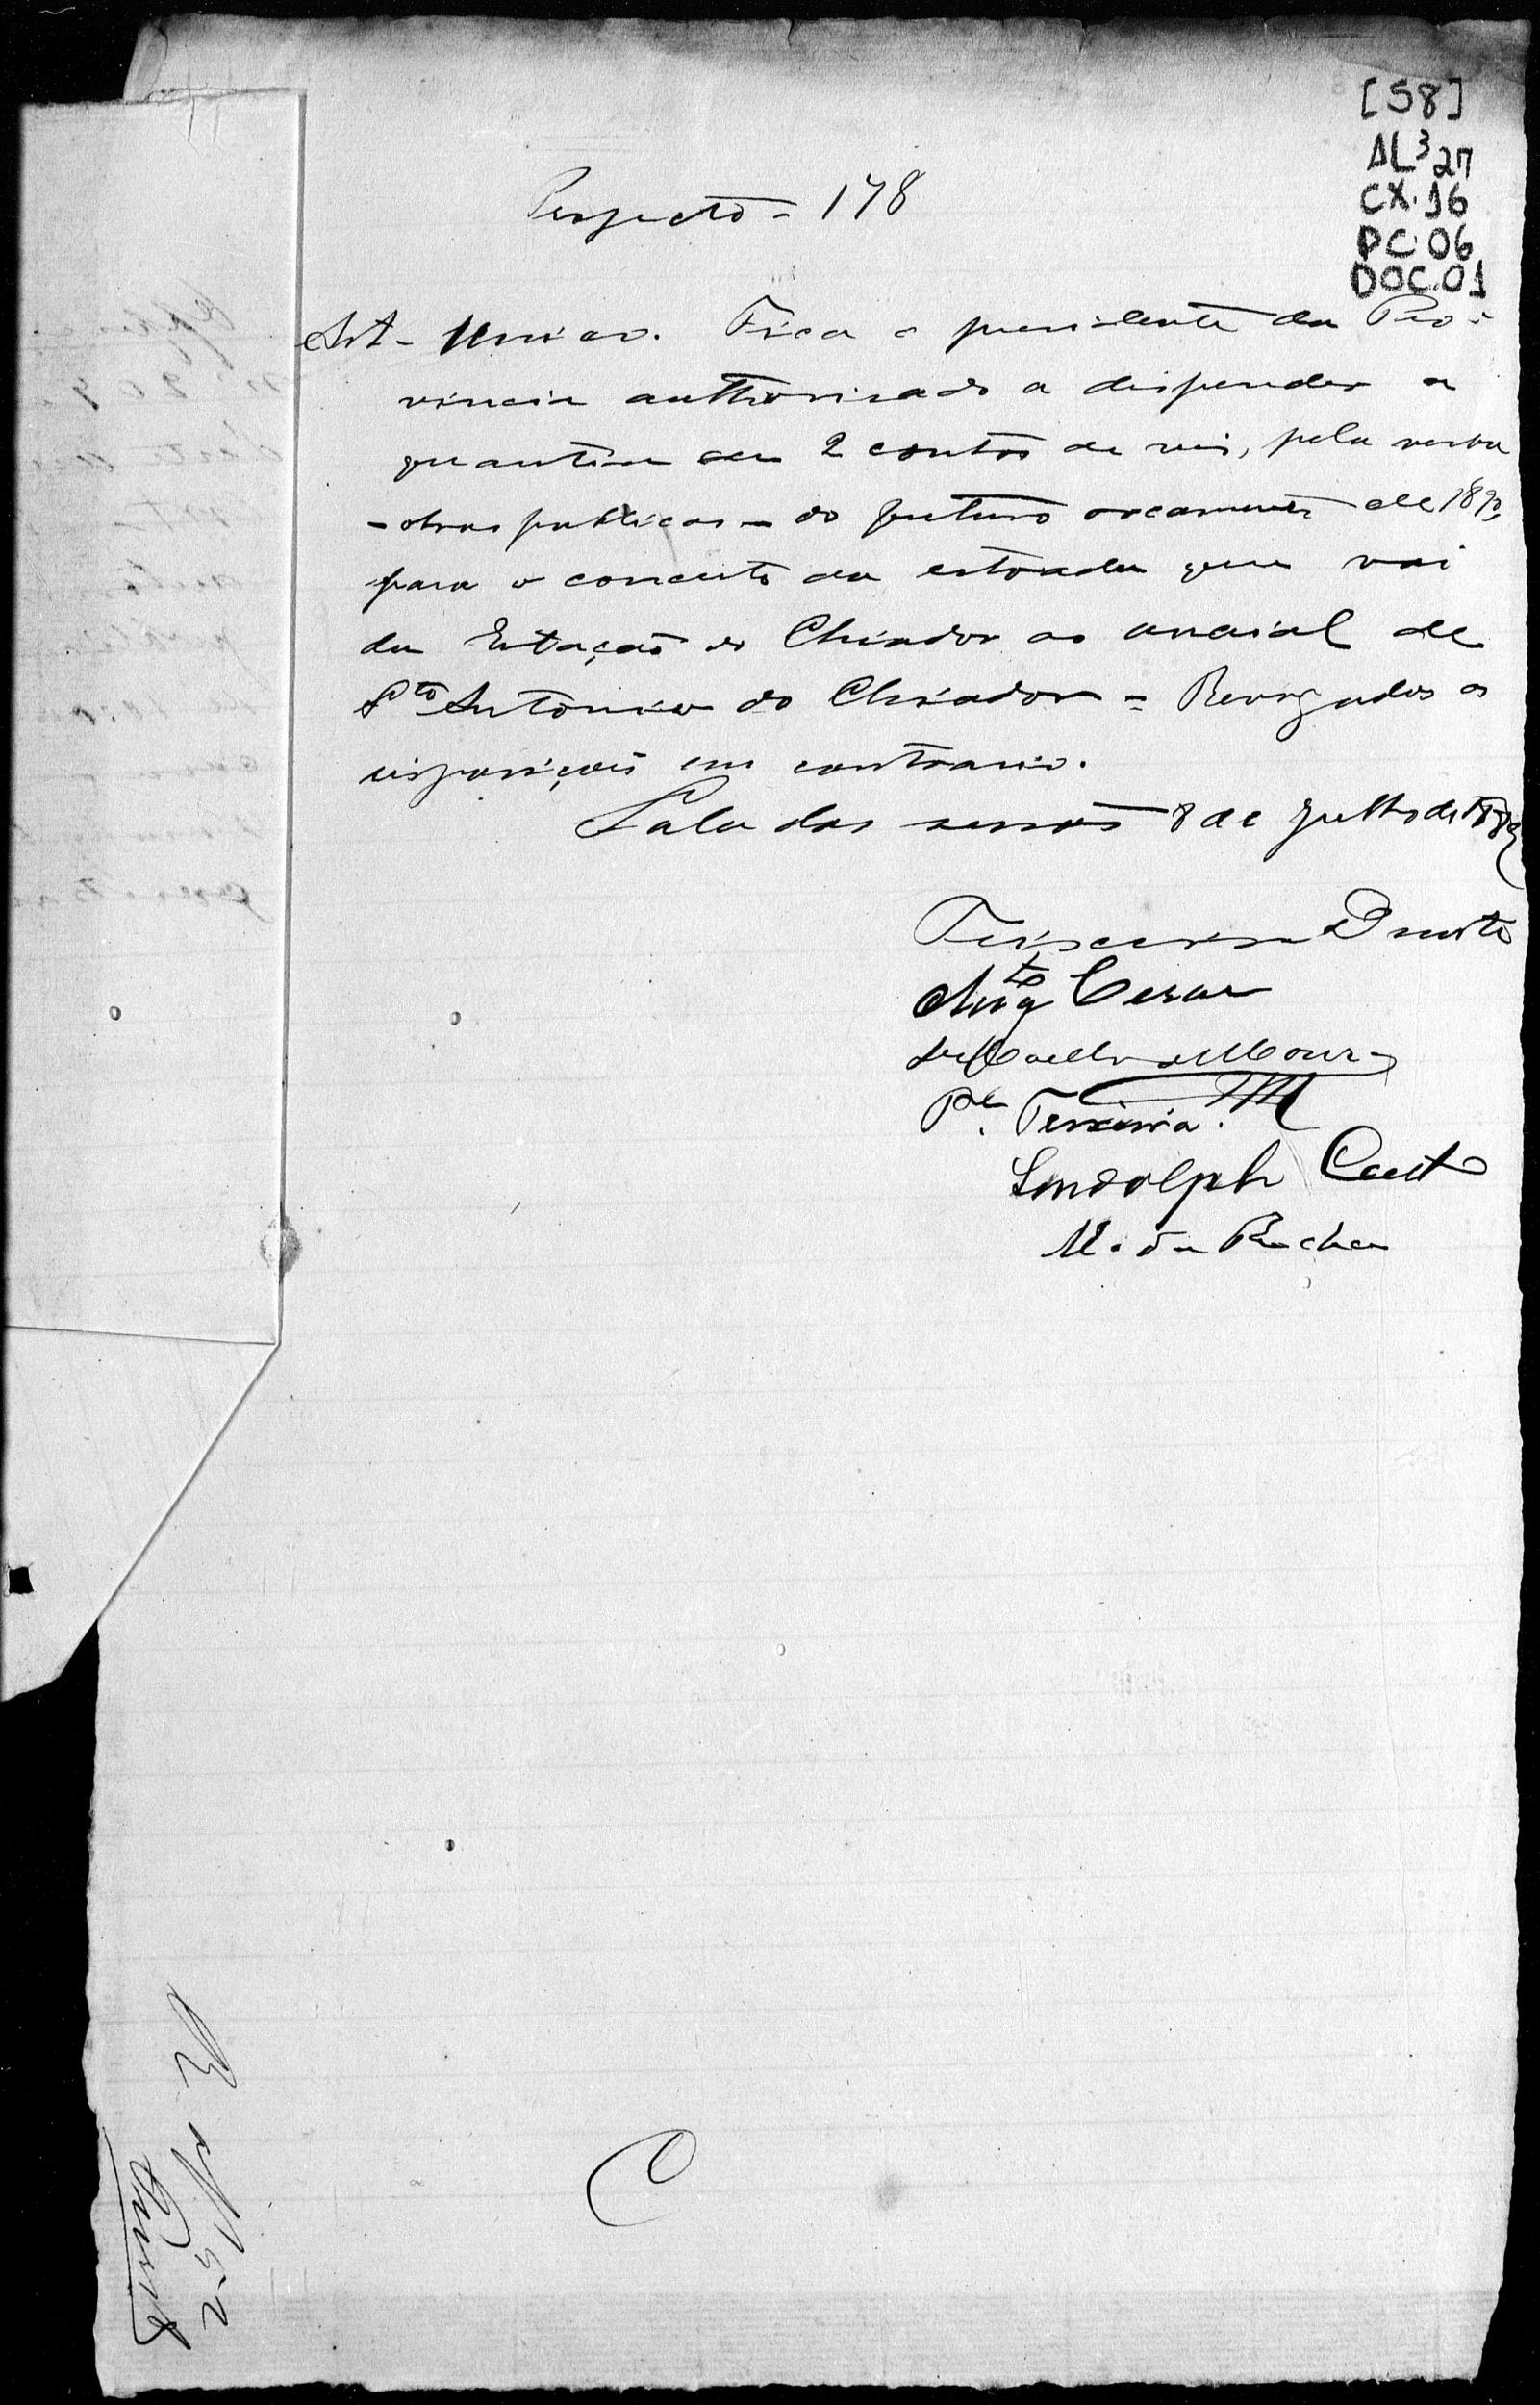 [58]
AL³27
CX.16
PC.06
DOC.01
Projecto - 178
Art - Unico. Fica o presidente da Pro-
vincia authorisado a dispender a
quantia de 2 contos de reis, pela verba
- obras publicas - do futuro orcamento de 1890,
para o concerto da estrada que vai
da Estação do Chiador ao arraial de
Sto Antonio do Chiador = Revogadas as
disposições em contrario.
Sala das sessões 8 de Julho de 1889
Teixeira Duarte
Augto Cesar
Pe. Teixeira
Lindolpho Caet
M. da Rocha
C